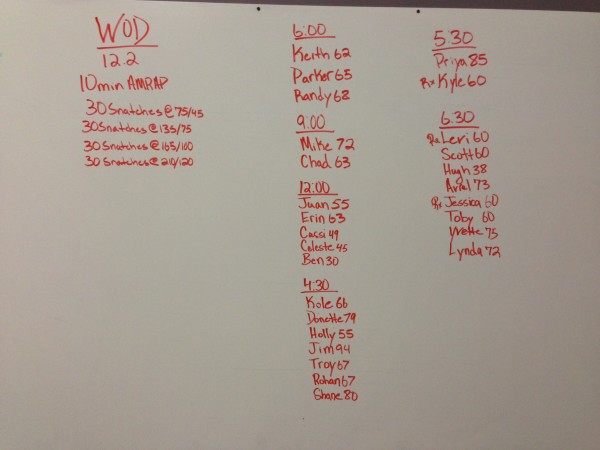 WOD
12.2
10min AMRAP
30 Snatches @ 75/45
30 Snatches @ 135/75
30 Snatches @ 165/100
30 Snatches @ 210/120
6:00
Keith 62
Parker 65
Randy 68
9:00
Mike 72
Chad 63
12:00
Juan 55
Erin 63
Cassi 49
Celeste 45
Ben 30
4:30
Kole 66
Donette 79
Holly 55
Jim 94
Troy 67
Rohan 67
Shane 80
5:30
Priya 85
Rx Kyle 60
6:30
Rx Levi 60
Scott 60
Hugh 38
Arial 73
Rx Jessica 60
Toby 60
Yvette 75
Lynda 72